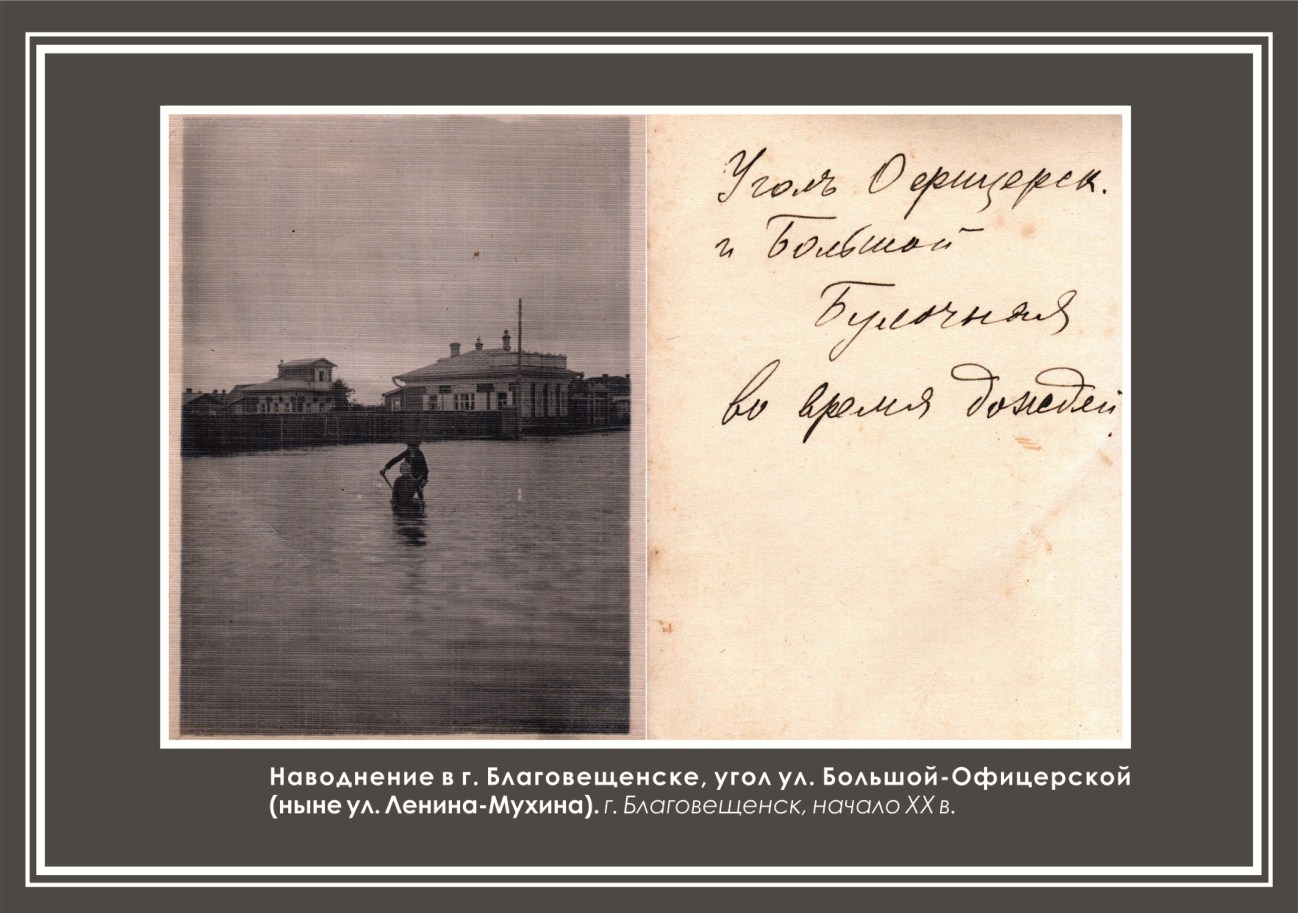 Уголъ Офицерск.
и Большой
Булочная
во время дождей
Наводнение в г. Благовещенске, угол ул. Большой-Офицерской
(ныне ул. Ленина-Мухина). г. Благовещенск, начало XX в.